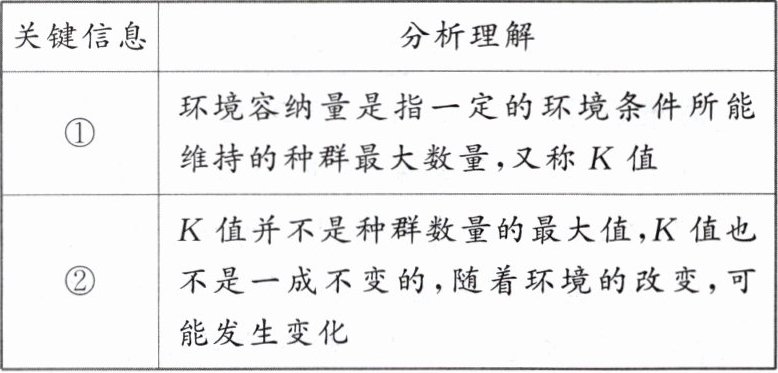 关键信息 分析理解
① 环境容纳量是指一定的环境条件所能
维持的种群最大数量,又称 K 值
② K 值并不是种群数量的最大值,K 值也
不是一成不变的,随着环境的改变,可
能发生变化